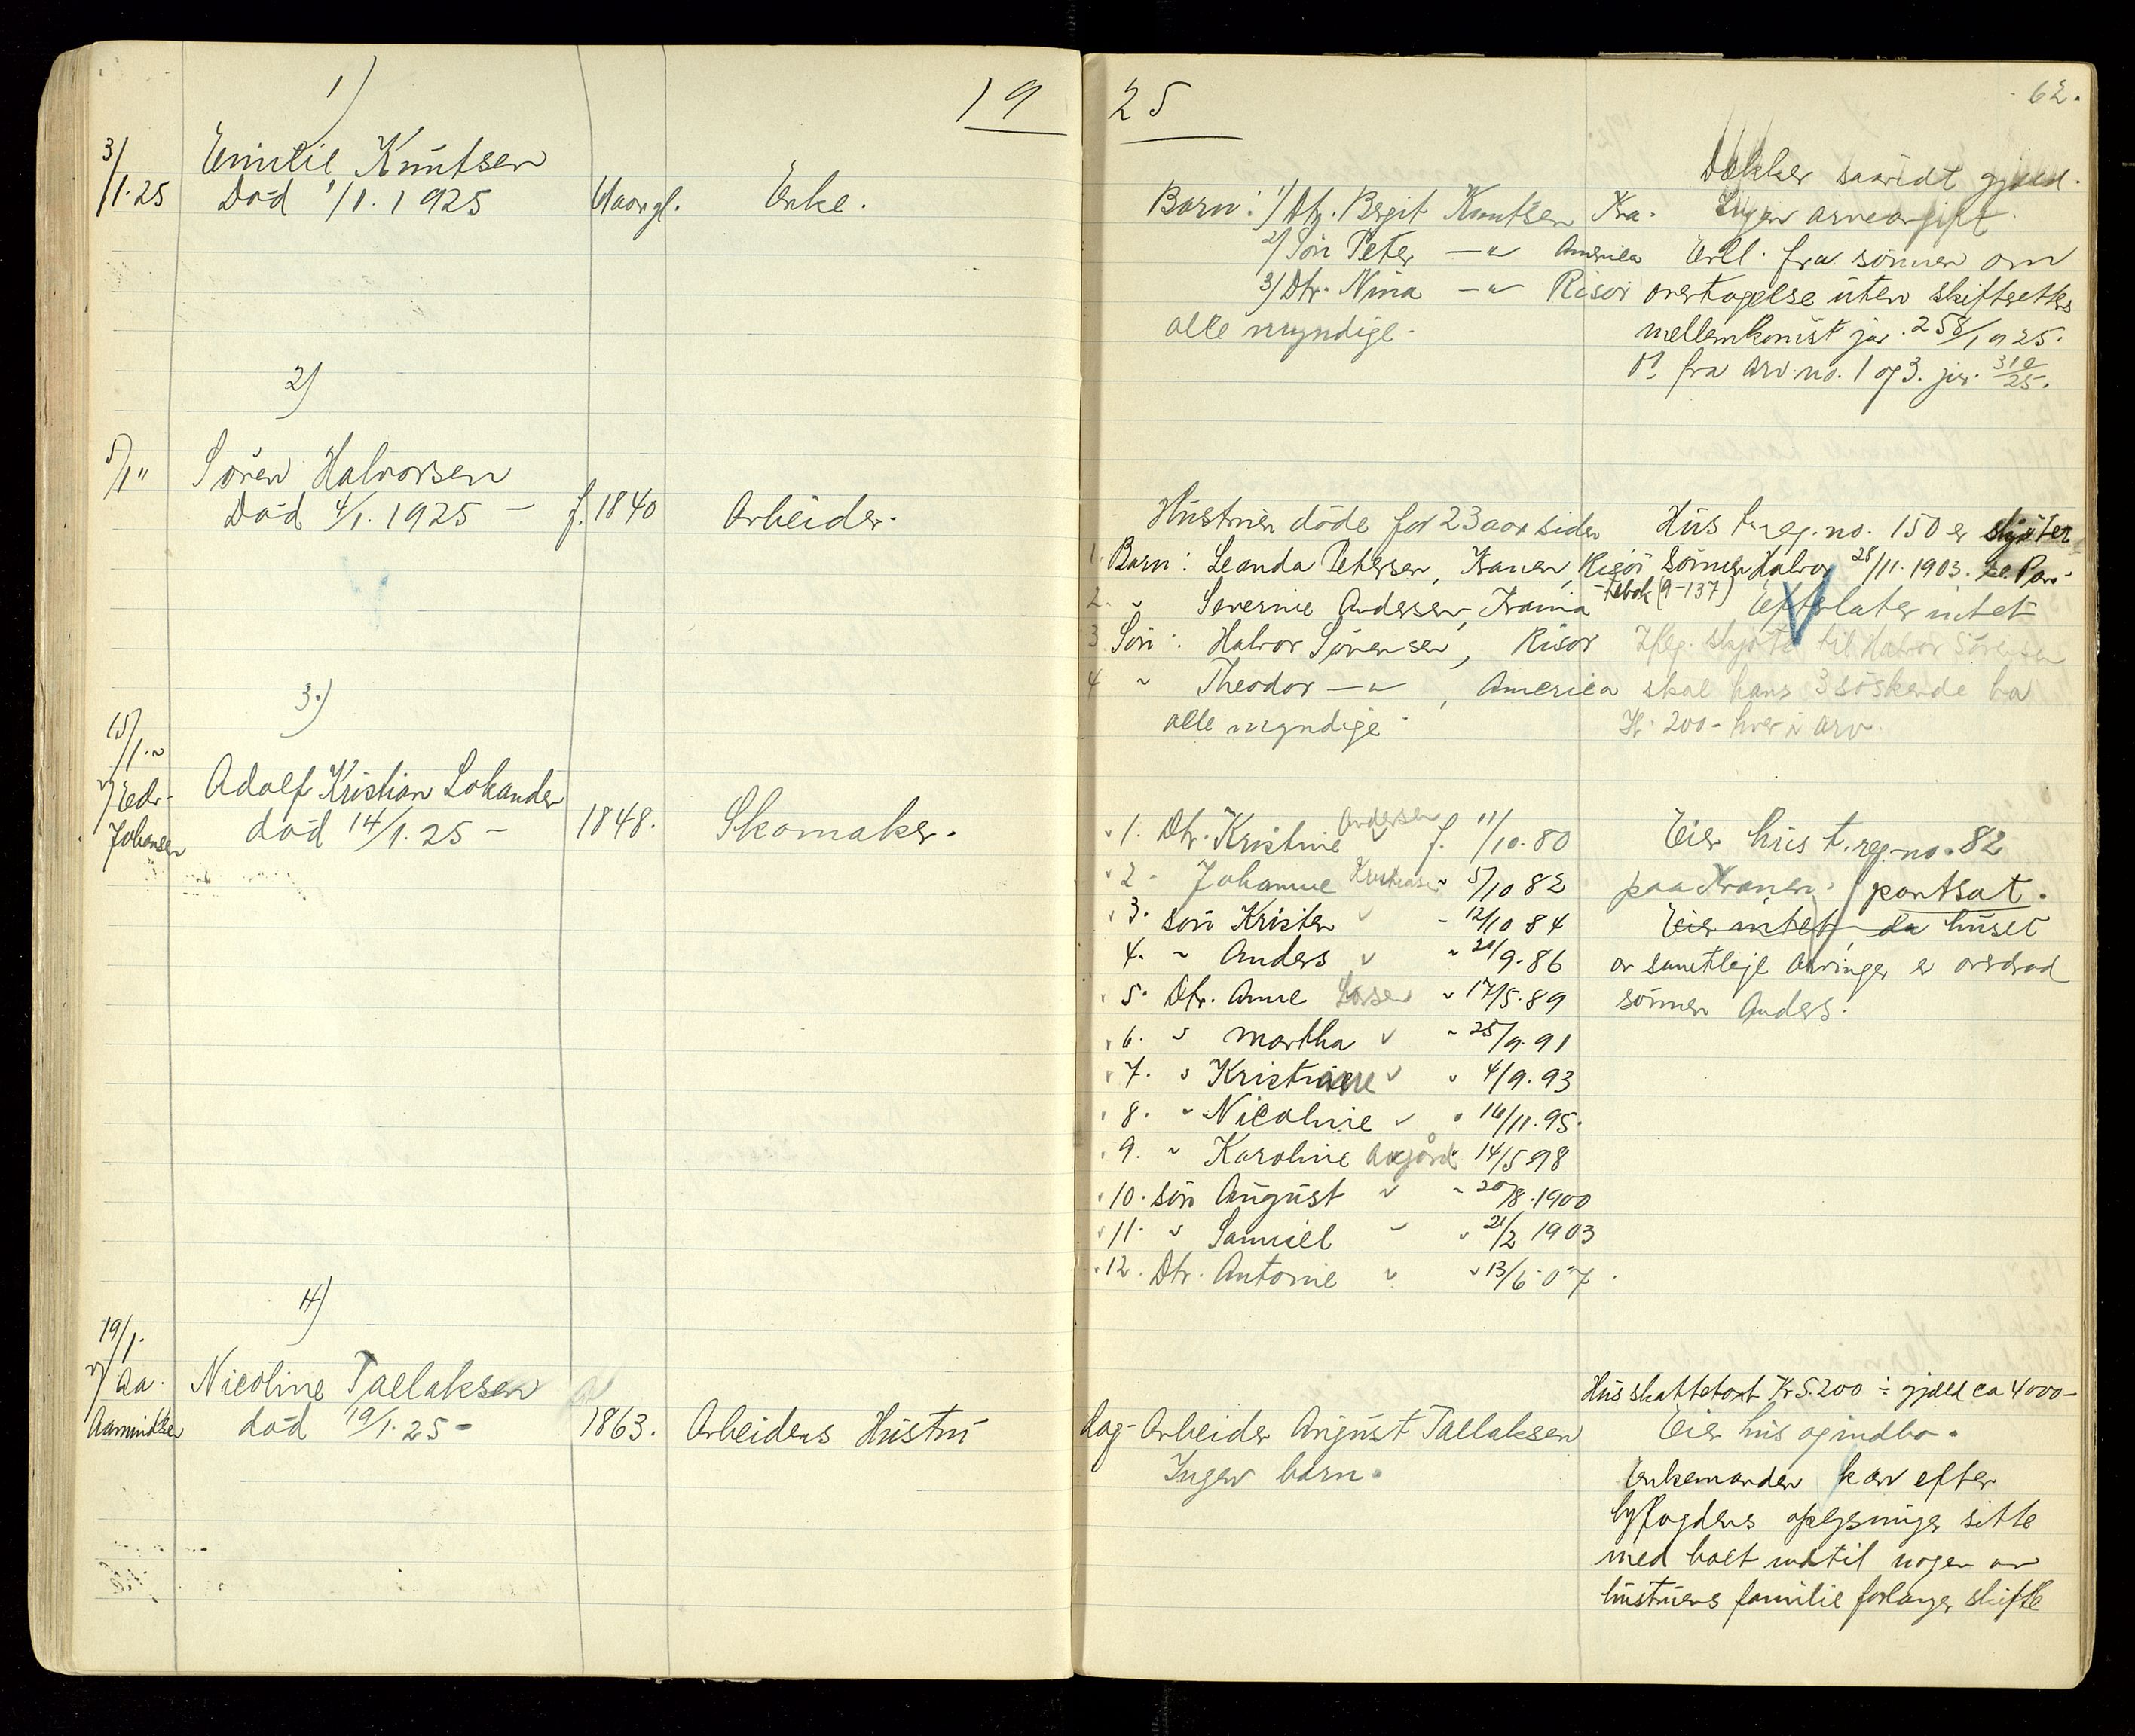 19 25
62.
1)
3/1.25
Emilie Knutsen
Död 1/1. 1925
61 aar gl.
Enke.
Barn: 1) Dtr. Bergit Knutsen Kra.
2) Sön Peter —"— America
3) Dtr. Nina —"— Risör
alle myndige.
Dækker saavidt gjæld.
Ingen arveavgift.
Erkl. fra sönnen om
overtagelse uten skifterettes
mellemkomst jnr. 258/1925.
fra arv. no. 1 og 3. jnr. 310/25.
2)
5/1 "
Sören Halvorsen
Död 4/1. 1925 –
f. 1840
Arbeider.
Hustruen döde for 23 aar siden
1. Barn: Leanda Petersen, Kranen, Risör
2. " Severine Andersen, Krana
3 Sön: Halvor Sörensen, Risör
4 " Theodor —"—, America
alle myndige.
Hus t. reg. no. 150 er skjötet
sönnen Halvor 28/11. 1903.
tebok (9-137)
Efterlater intet
Iflg. skjöte til Halvor Sörensen
skal hans 3 söskende ha
Kr. 200 - hver i arv.
3.)
15/1. "
v/ Edv.
Johansen
Adolf Kristian Lokander
död 14/1. 25 –
1848.
Skomaker.
1. Dtr. Kristine Andersen f. 11/10. 80
2 - Johanne Kristiansen " 5/10 82
3. sön Kristen " - 12/10 84
4. " Anders " " 20/9. 86
5. Dtr. Anne Larsen " 17/5. 89
6. " Martha " " 25/9. 91
7. " Kristiane " " 4/9. 93
8. " Nicoline " " 16/11. 95.
9. " Karoline 14/5 98
10. sön August " " 20/8. 1900
11. " Samuel " " 21/2 1903
12. Dtr. Antonie " " 13/6 07.
Eier hus t. reg. no. 82
paa Kranen. pantsat.
Eier intet, da huset
av samtlige arvinger er overdrad
sönnen Anders.
4)
19/1.
v/ Aa.
Aamundsen
Nicoline Tallaksen
död 19/1. 25 –
1863.
Arbeiders Hustru
Dag-Arbeider August Tallaksen
Ingen barn.
Hus skattetaxt Kr 5.200 ÷ gjæld ca 4000 –
Eier hus og indbo.
Enkemanden kan efter
byfogdens oplysninger sitte
med boet indtil nogen av
hustruens familie forlanger skifte